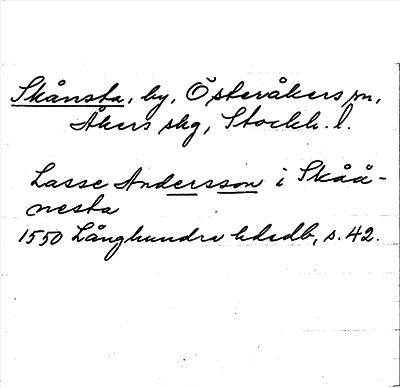 Skånsta, by, Österåkers sn,
Åkers skg, Stockh. l.
Lasse Andersson i Skåå-
nesta
1550 Långhundra hdsdb, s. 42.